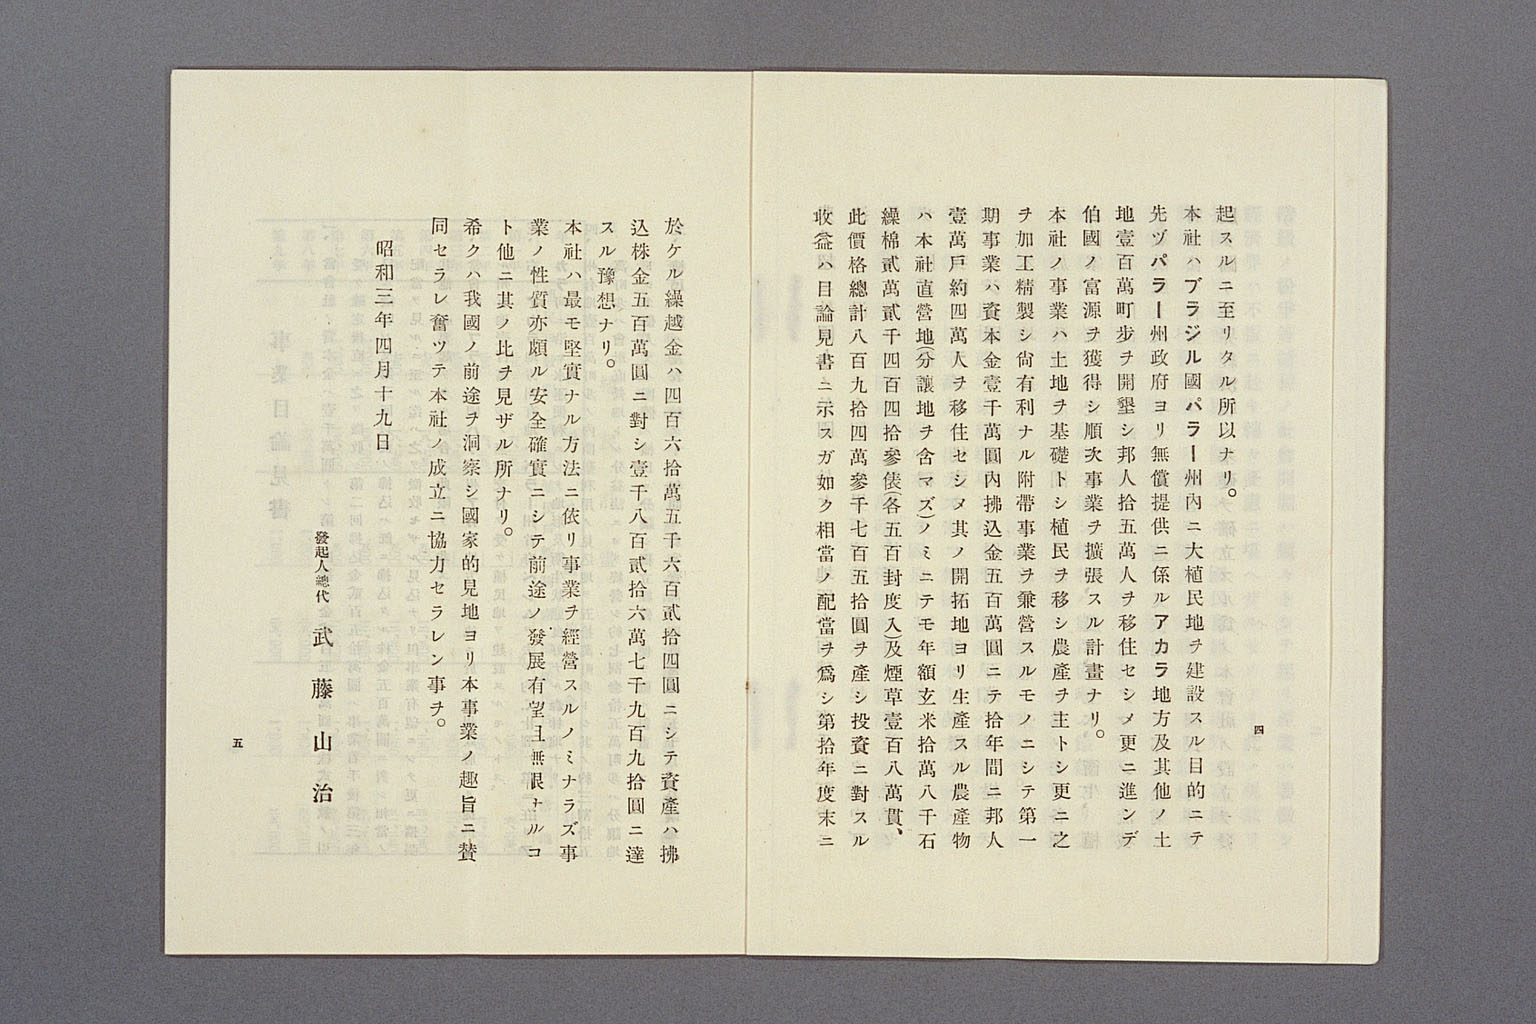 起スルニ至リタル所以ナリ。
本社ハブラジル國パラー州內ニ大植民地ヲ建設スル目的ニテ
先ヅパラー州政府ヨリ無償提供ニ係ルアカラ地方及其他ノ土
地壹百萬町步ヲ開墾シ邦人拾五萬人ヲ移住セシメ更ニ進ンデ
伯國ノ富源ヲ獲得シ順次事業ヲ擴張スル計畫ナリ。
本社ノ事業ハ土地ヲ基礎トシ植民ヲ移シ農產ヲ主トシ更ニ之
ヲ加工精製シ尙有利ナル附帶事業ヲ兼營スルモノニシテ第一
期事業ハ資本金壹千萬圓內拂込金五百萬圓ニテ拾年間ニ邦人
壹萬戶約四萬人ヲ移住セシメ其ノ開拓地ヨリ生產スル農產物
ハ本社直營地(分讓地ヲ含マズ)ノミニテモ年額玄米拾萬八千石
繰棉貳萬貳千四百四拾參俵(各五百封度入)及煙草壹百八萬貫、
此價格總計八百九拾四萬參千七百五拾圓ヲ產シ投資ニ對スル
收益ハ目論見書ニ示スガ如ク相當ノ配當ヲ爲シ第拾年度末ニ
四
於ケル繰越金ハ四百六拾萬五千六百貳拾四圓ニシテ資產ハ拂
込株金五百萬圓ニ對シ壹千八百貳拾六萬七千九百九拾圓ニ達
スル豫想ナリ。
本社ハ最モ堅實ナル方法ニ依リ事業ヲ經營スルノミナラズ事
業ノ性質亦頗ル安全確實ニシテ前途ノ發展有望且無限ナルコ
ト他ニ其ノ比ヲ見ザル所ナリ。
希クハ我國ノ前途ヲ洞察シ國家的見地ヨリ本事業ノ趣旨ニ贊
同セラレ奮ツテ本社ノ成立ニ協力セラレン事ヲ。
昭和三年四月十九日
發起人總代 武藤山治
五